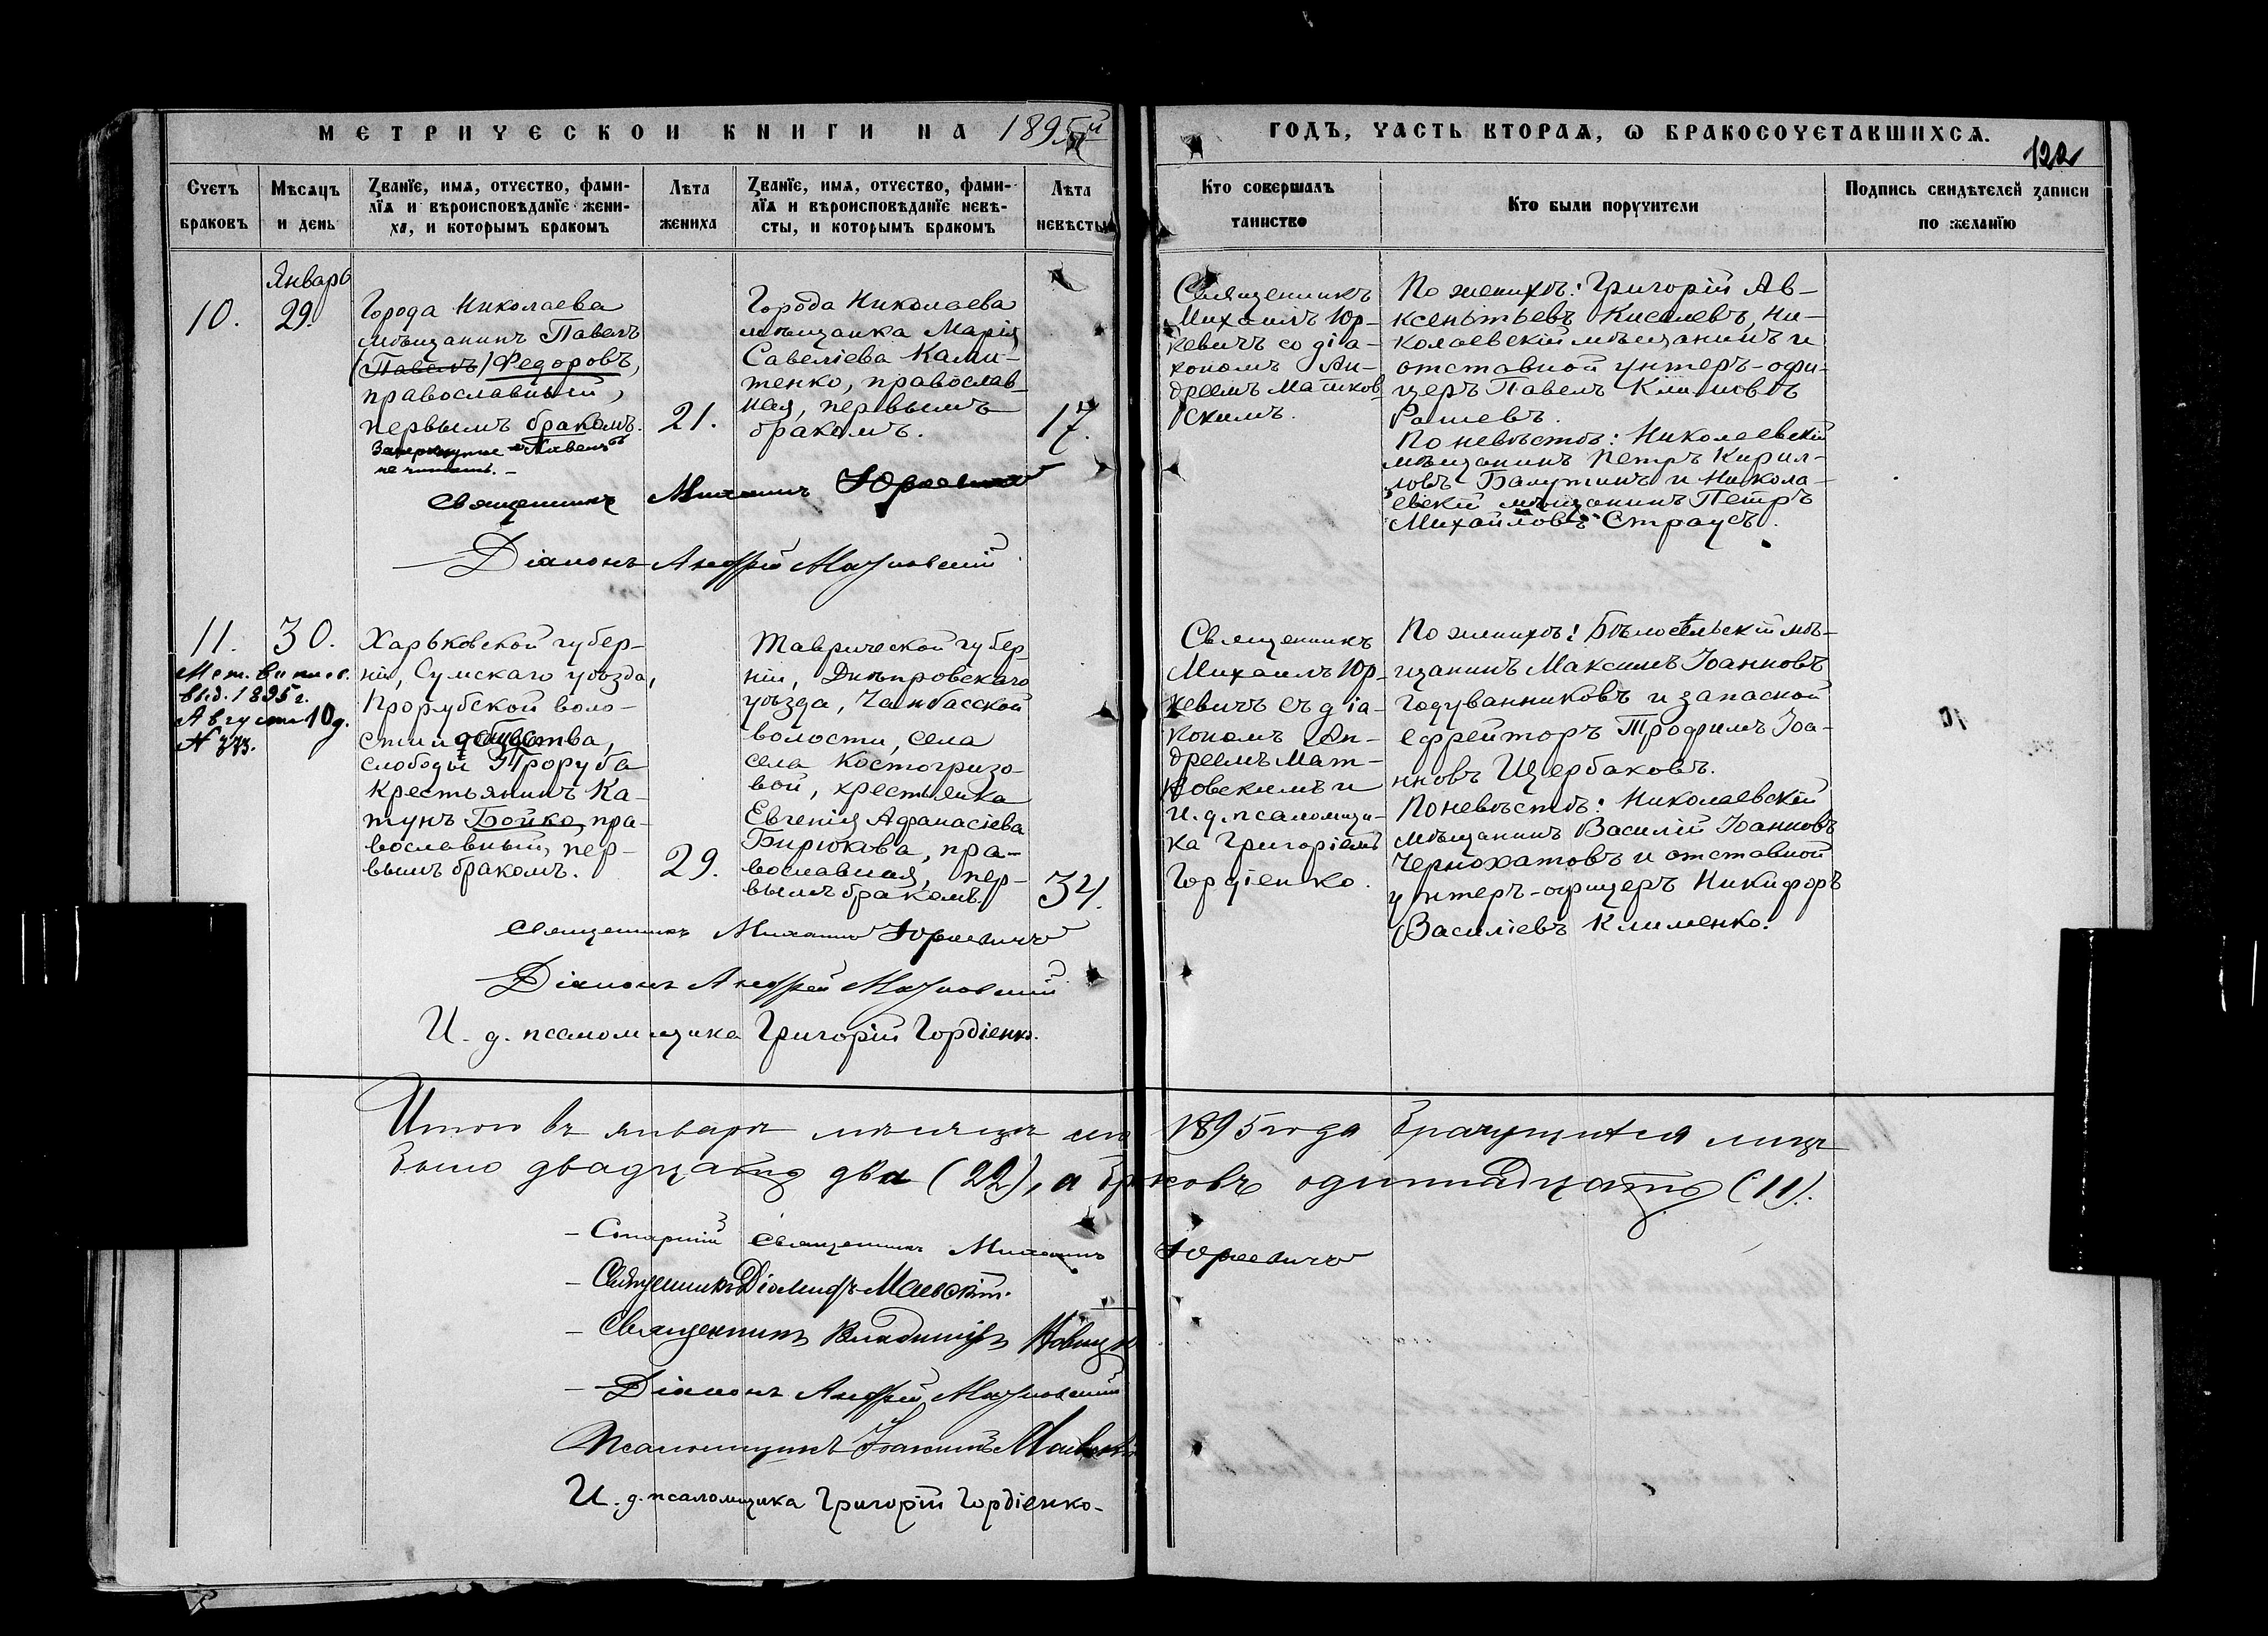 МЕТРИЧЕСКОЙ КНИГИ НА 1895й
ГОДЪ, ЧАСТЬ ВТОРАѦ, Ѡ БРАКОСОЧЕТАВШИХСѦ.
122
Счетъ браковъ
Мѣсѧцъ и день
Званїе, имѧ, отчество, фами-
лїѧ и вѣроисповѣданїе жени-
ха, и которымъ бракомъ
Лѣта жениха
Званїе, имѧ, отчество, фами-
лїѧ и вѣроисповѣданїе невѣ-
сты, и которымъ бракомъ
Лѣта невѣсты
Кто совершалъ таинство
Кто были поручители
Подпись свидѣтелей записи
по желанїю
10.
Январь
29.
Города Николаева
мѣщанинъ Павелъ
(Павелъ) Федоровъ,
православный,
первымъ бракомъ.
Зачеркнутое „Павелъ“
не читать. –
21.
Города Николаева
мѣщанка Марія
Савеліева Ками-
тенко, православ-
ная, первымъ
бракомъ.
17.
Священникъ
Михаилъ Юр-
кевичъ со діа-
кономъ Ан-
дреемъ Матков
скимъ.
По женихѣ: Григорій Ав-
ксентьевъ Киселевъ, Ни-
колаевскій мѣщанинъ и
отставной унтеръ-офи-
церъ Павелъ Климовъ
Рашевъ.
По невѣстѣ: Николаевскій
мѣщанинъ Петръ Кирил-
ловъ Балутинъ и Никола-
евскій мѣщанинъ Петръ
Михайловъ Страусъ.
Священникъ Михаилъ Юркевичъ
Діаконъ Андрей Матковскій
11.
Мет. выпись
выд. 1895 г.
Августа 10 д.
N 373.
30.
Харьковской губер-
ніи, Сумскаго уѣзда,
Прорубской воло-
сти и общества,
слободы Проруба
крестьянинъ Ка-
тунъ Бойко, пра-
вославный, пер-
вымъ бракомъ.
29.
Таврической губер-
ніи, Днѣпровскаго
уѣзда, Чалбасской
волости, села
села Костогризо-
вой, крестьянка
Евгенія Афанасіева
Бирюкова, пра-
вославная, пер-
вымъ бракомъ.
34.
Священникъ
Михаилъ Юр-
кевичъ съ діа-
кономъ Ан-
дреемъ Мат-
ковскимъ и
и. д. псаломщи-
ка Григоріемъ
Гордіенко.
По женихѣ: Бѣлосельскій мѣ-
щанинъ Максимъ Іоанновъ
Годуванниковъ и запасной
ефрейторъ Трофимъ Іоа-
нновъ Щербаковъ.
По невѣстѣ: Николаевскій
мѣщанинъ Василій Іоанновъ
Чернохатовъ и отставной
унтеръ-офицеръ Никифоръ
Василіевъ Клименко.
Священникъ Михаилъ Юркевичъ
Діаконъ Андрей Матковскій
И. д. псаломщика Григорій Гордіенко.
Итого въ январѣ мѣсяцѣ сего 1895 года брачущихся лицъ
было двадцать два (22), а браковъ одиннадцать (11).
– Старшій Священникъ Михаилъ Юркевичъ
– Священникъ Діомидъ Маевскій.
– Священникъ Владиміръ
– Діаконъ Андрей Матковскій
Псаломщикъ Іоаннъ
И. д. псаломщика Григорій Гордіенко.